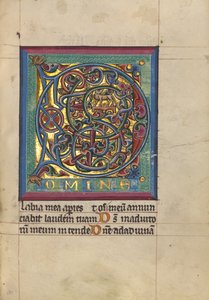 D
OMINE
labia mea apies ⁊ os meū annun
ciabit laudem tuam D̄s in adiuto
riū meum intende Dn̄e ad adiuuan